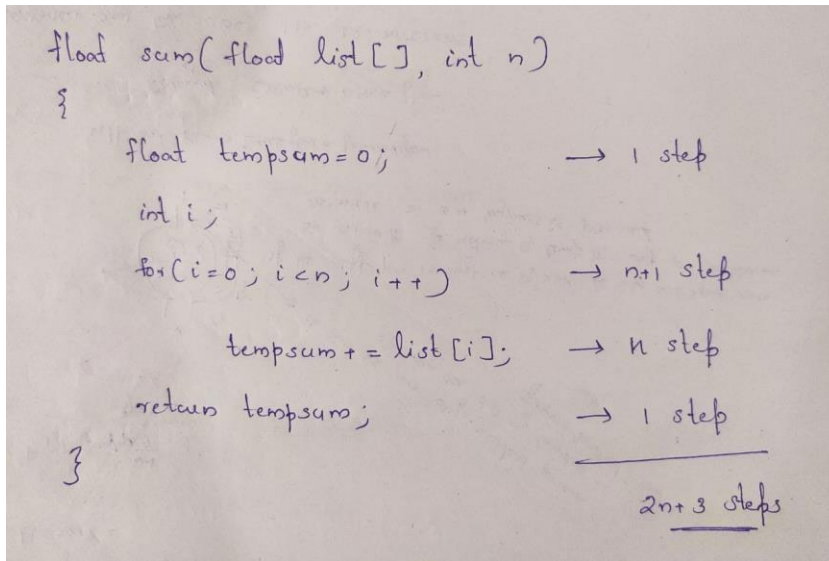 float sum( float list [ ], int n)
{
float tempsum = 0; → 1 step
int i;
for( i=0; i<n; i++) → n+1 step
tempsum + = list [i]; → n step
return tempsum; → 1 step
}
2n+3 steps